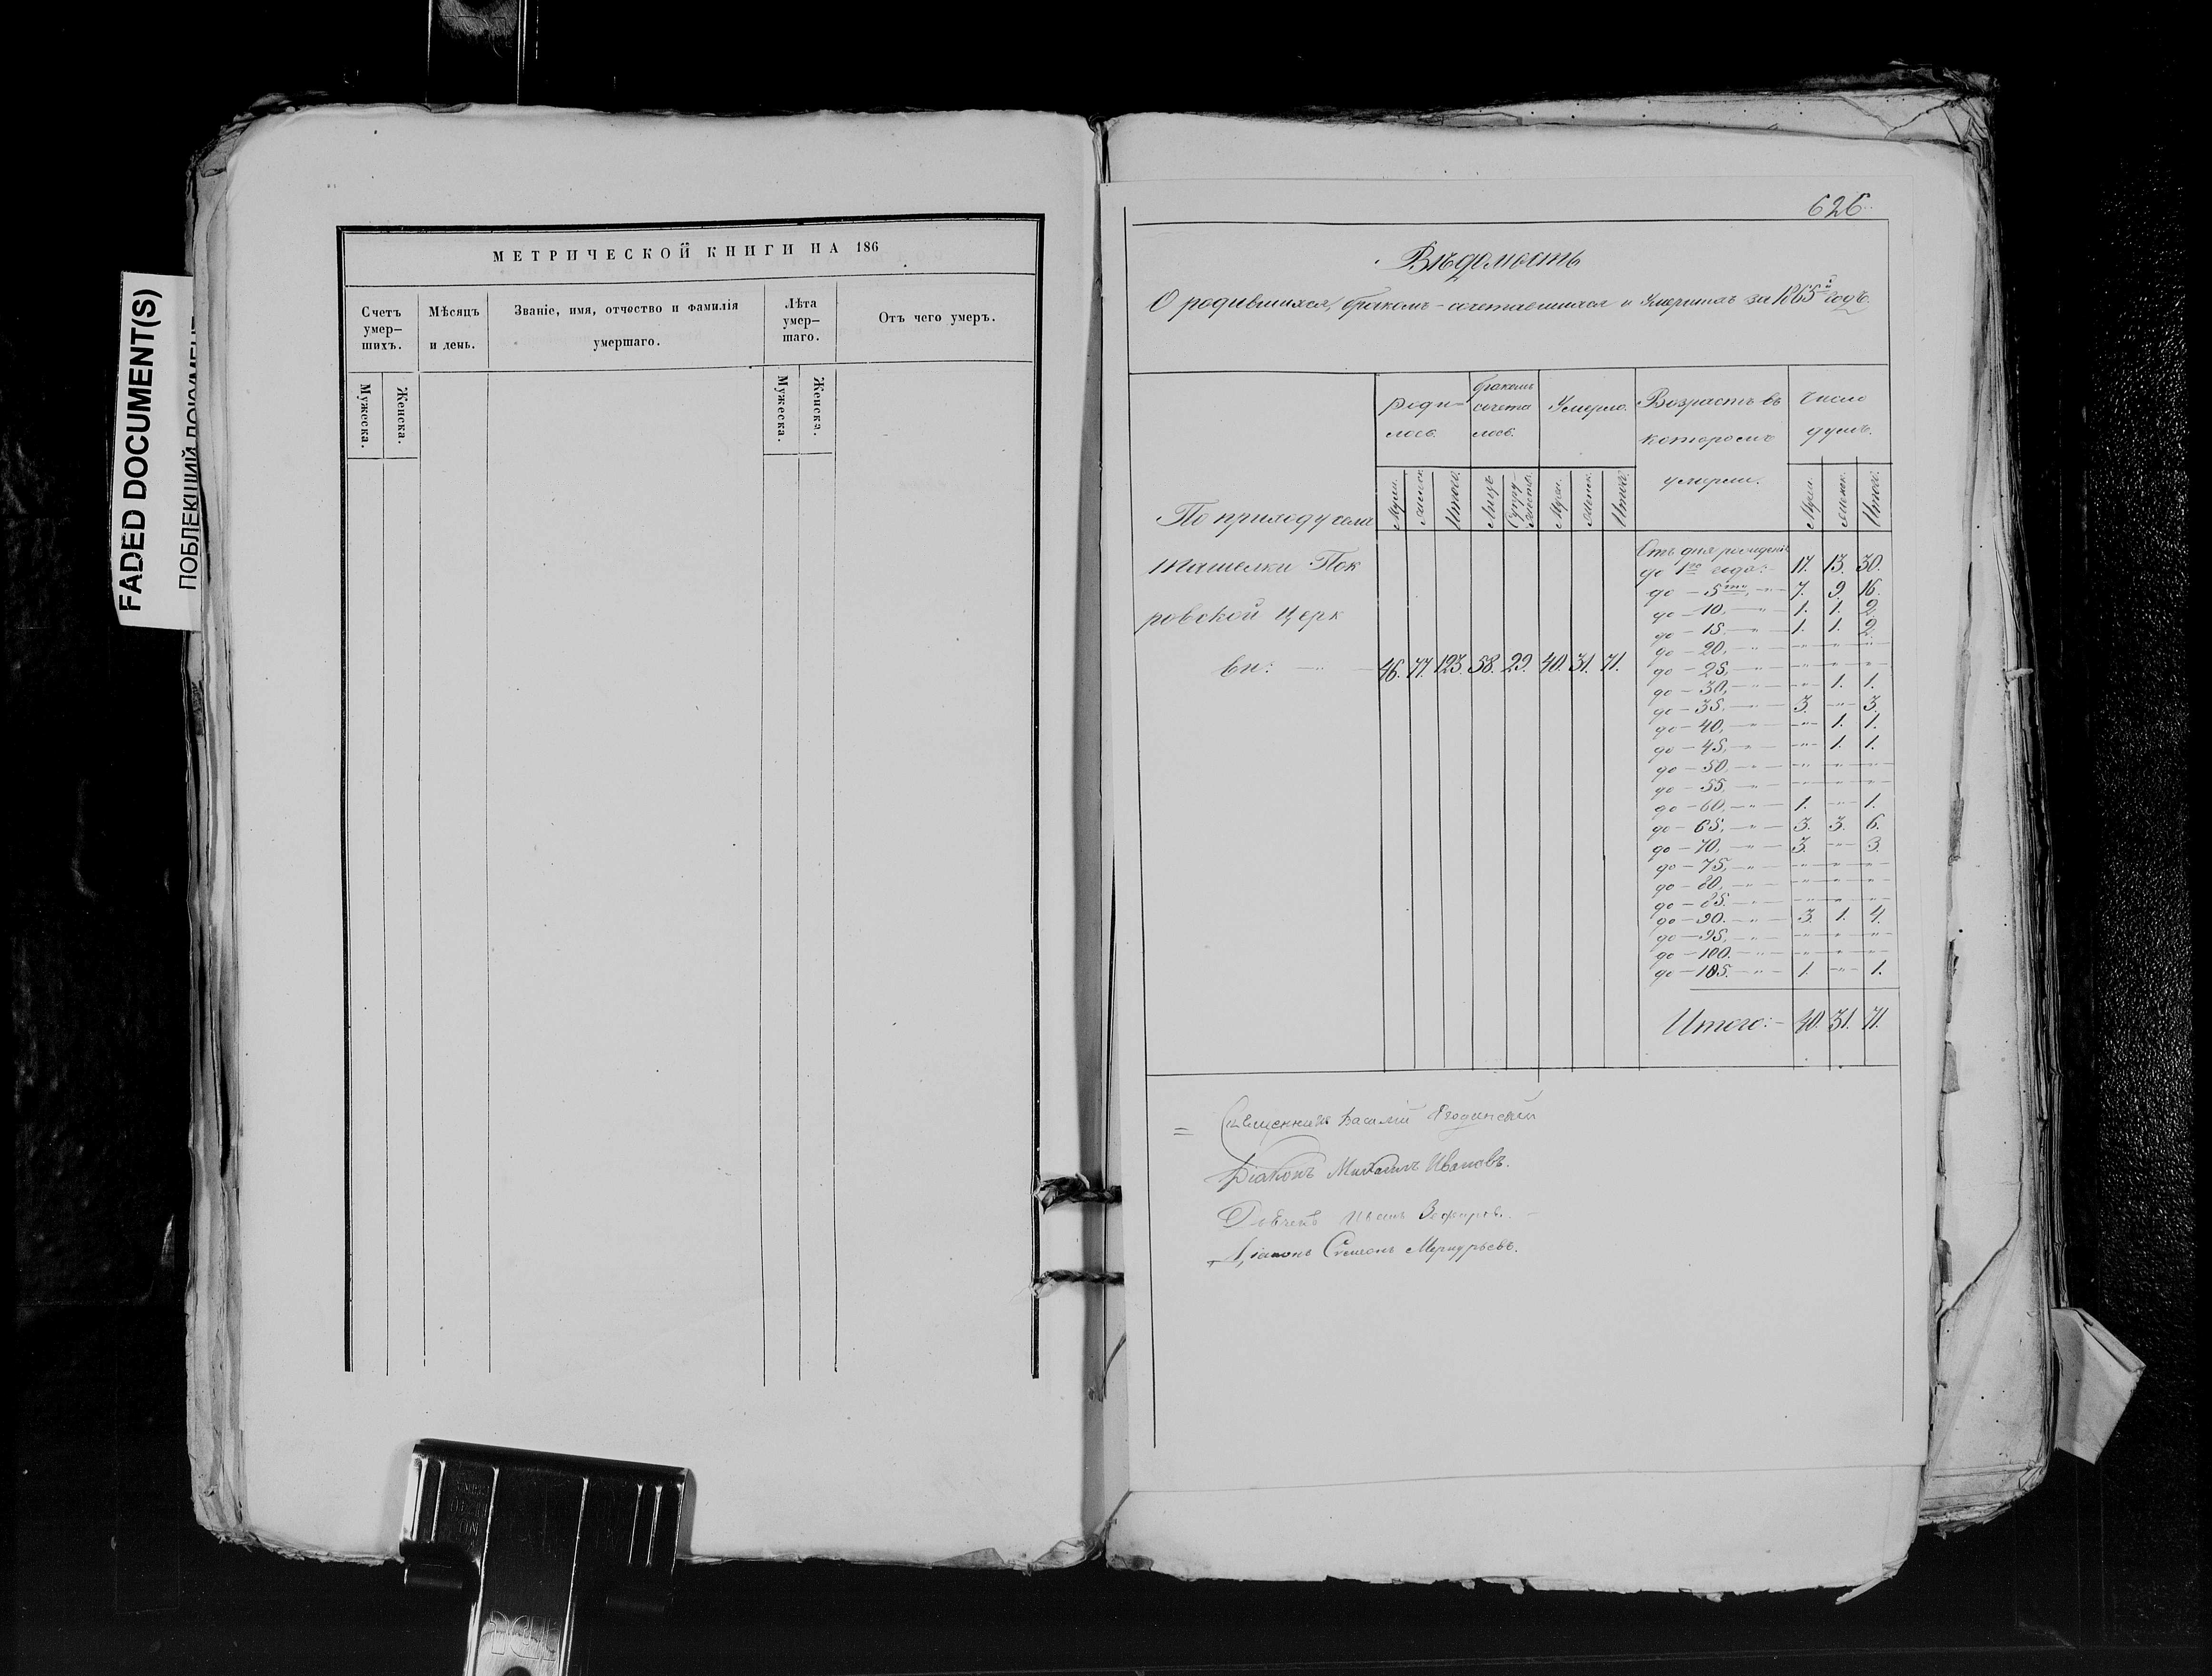 FADED DOCUMENT(S)
ПОБЛЕКШИЙ ДОКУМЕНТ
МЕТРИЧЕСКОЙ КНИГИ НА 186
Счетъ умер-
шихъ.
Мѣсяцъ
и день.
Званіе, имя, отчество и фамилія
умершаго.
Лѣта
умер-
шаго.
Отъ чего умеръ.
Мужеска.
Женска.
Мужеска.
Женска.
626.
Вѣдомость
О родившихся, бракомъ-сочетавшихся и Умершихъ за 1865й годъ.
роди-
лось.
бракомъ
сочета
лось.
Умерло.
Возрастъ въ
которомъ
умерли.
Число
душъ.
Муж. Женск. Итого. Лицъ Супру-
жествъ. Муж. Женск. Итого. Муж. Женск. Итого.
По приходу села
Ташелки Пок
ровской Церк
ви: — " — 46. 77. 123. 58. 29. 40. 31. 71.
Отъ дня рожденія
до 1го года:- 17. 13. 30.
до - 5ти, - " - 7. 9. 16.
до - 10, - " - 1. 1. 2.
до - 15, - " - 1. 1. 2.
до - 20, - " - - " - - " - - " -
до - 25, - " - - " - - " - - " -
до - 30, - " - - " - 1. 1.
до - 35, - " - 3. - " - 3.
до - 40, - " - - " - 1. 1.
до - 45, - " - - " - 1. 1.
до - 50, - " - - " - - " - - " -
до - 55, - " - - " - - " - - " -
до - 60, - " - 1. - " - 1.
до - 65, - " - 3. 3. 6.
до - 70, - " - 3. - " - 3.
до - 75, - " - - " - - " - - " -
до - 80, - " - - " - - " - - " -
до - 85. - " - - " - - " - - " -
до - 90. - " - 3. 1. 4.
до - 95, - " - - " - - " - - " -
до - 100. - " - - " - - " - - " -
до - 105. - " - 1. - " - 1.
Итого:- 40. 31. 71.
= Священникъ Василій
Діаконъ Михаилъ Ивановъ.
Дьячекъ Иванъ
Діаконъ Симеонъ Меркурьевъ.